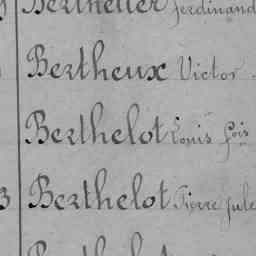 Berthelier Ferdinand
Bertheux Victor
Berthelot Louis fois
3 Berthelot Pierre Jule